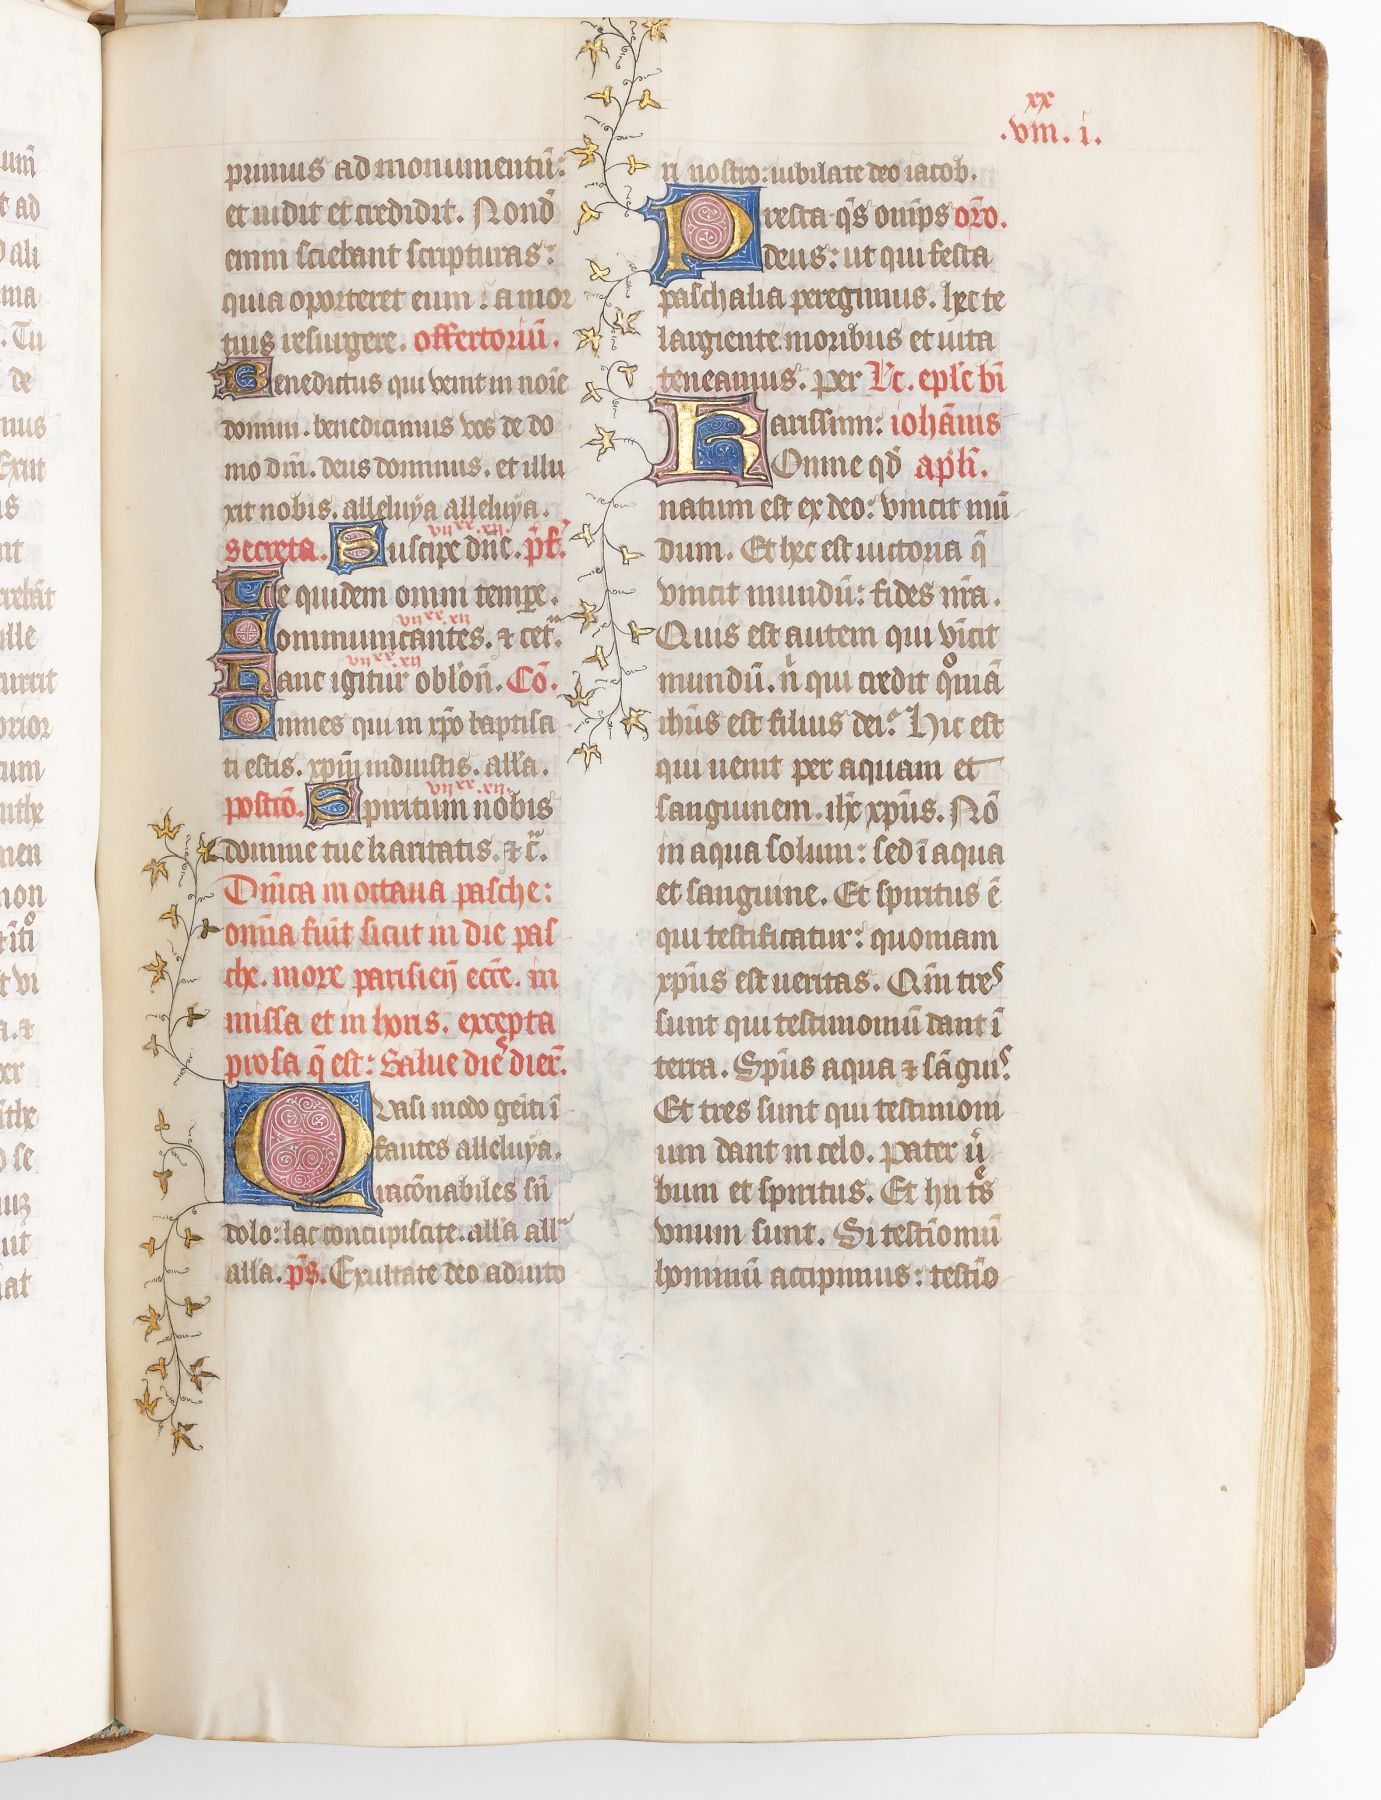 xx
.vIII. i.
primus ad monumentū:
et uidit et credidit. Nondū
enim sciebant scripturas:
quia oporteret eum : a mor
tuis resurgere. offertoriū.
Benedictus qui venit in noīe
domini. benedicimus vos de do
mo dn̄i. deus dominus. et illu
xit nobis. alleluya alleluya.
vij xx. xij.
secreta. Suscipe dn̄e. p̄f.
Te quidem omni temp̲e.
vij xx. xij
Communicantes. ⁊ cet̄.
vij xx. xij
Hanc igitur oblōn̄. Cō.
Omnes qui in xp̄o baptisa
ti estis. xp̄m induistis. allā.
vij xx. xij.
postcō. Spiritum nobis
domine tue karitatis. ⁊ c̄.
Dn̄ica in octaua pasche:
omīa fiūt sicut in die pas
che. more parisien̄ ecc̄e. in
missa et in horis. excepta
prosa q̄ est: Salue dies dier̄.
Quasi modo geīti ī
fantes alleluya.
racōnabiles sn̄
dolo: lac concupiscite. allā all
allā. p̄s. Exultate deo adiuto
ri nostro: iubilate deo iacob.
Presta q̄s om̄ps oro.
deus: ut qui festa
paschalia peregimus. hec te
largiente moribus et uita
teneamus. per Lc̄. epl̄e bī
Karissimi: iohānis
Omne qd̄ apl̄i.
natum est ex deo: vincit mū
dum. Et hec est uictoria q̄
vincit mundū: fides nr̄a.
Quis est autem qui vīcit
mundū. nͥ qui credit qͦniā
ih̄us est filius dei? Hic est
qui uenit per aquam et
sanguinem. ih̄c xp̄us. Nō
in aqua solum: sed ī aqua
et sanguine. Et spiritus ē
qui testificatur: quoniam
xp̄us est ueritas. Qm̄ tres
sunt qui testimoniū dant ī
terra. Sp̄us aqua ⁊ sāguis
Et tres sunt qui testimoni
um dant in celo. pater ūͬ
bum et spiritus. Et hii tͤs
vnum sunt. Si testīoniū
hominū accipimus: testīo